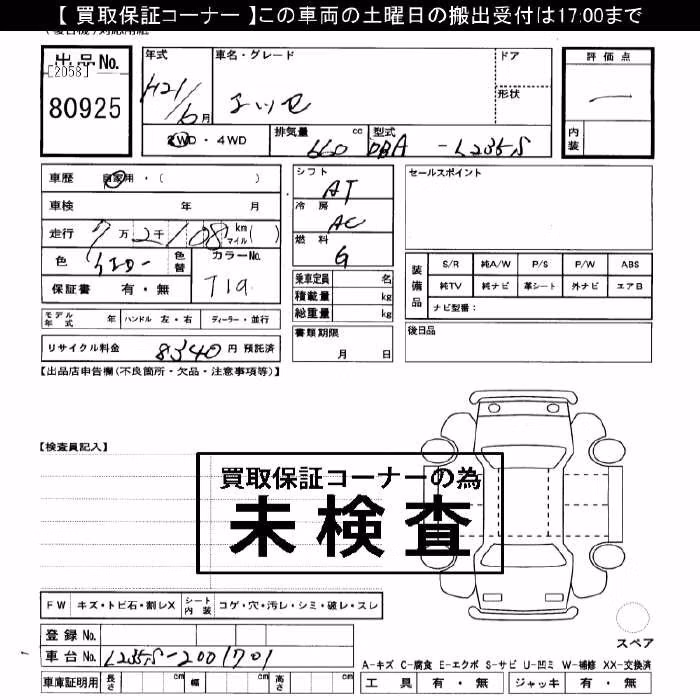 【 買取保証コーナー 】この車両の土曜日の搬出受付は17:00まで
出品No.
[2058]
80925
年式
H21/6月
車名・グレード
エッセ
ドア
形状
評価点
一
内装
2WD・4WD
排気量
660 cc
型式
DBA-L235S
車歴 自家用・( )
車検 年 月
走行 7万2千108 km マイル ( )
色 イエロー 色替
カラーNo.
T19
保証書 有・無
モデル年式 年 ハンドル 左・右 ディーラー・並行
リサイクル料金 8340 円 預託済
シフト
AT
冷房
AC
燃料
G
乗車定員 名
積載量 kg
総重量 kg
書類期限
月 日
セールスポイント
装備品
S/R 純A/W P/S P/W ABS
純TV 純ナビ 革シート 外ナビ エアB
ナビ型番:
後日品
【出品店申告欄(不良箇所・欠品・注意事項等)】
【検査員記入】
買取保証コーナーの為
未検査
FW キズ・トビ石・割レX シート内装 コゲ・穴・汚レ・シミ・破レ・スレ
登録 No.
車台 No. L235S-2001701
車庫証明用 長さ cm 幅 cm 高さ cm
スペア
A-キズ C-腐食 E-エクボ S-サビ U-凹ミ W-補修 XX-交換済
工具 有・無 ジャッキ 有・無